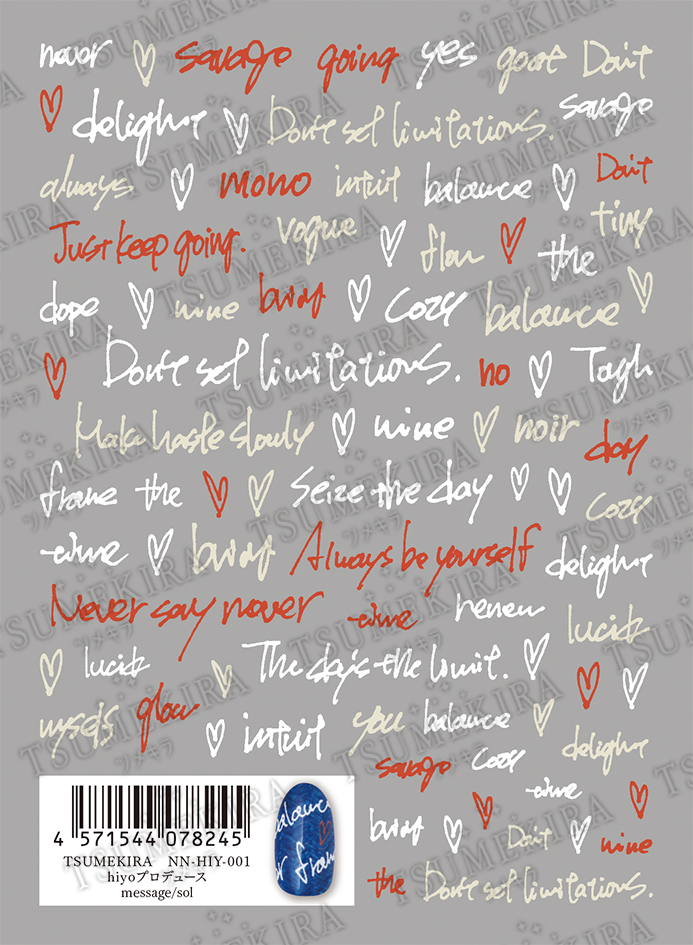 never savage going yes goat Don't
delight Don't set limitations. savage
always mono intuit balance Don't
Just keep going. vogue flow the tiny
dope nine burst cozy balance
Don't set limitations. no Tough
Make haste slowly nine noir day
frame the Seize the day cozy
time burst Always be yourself delight
Never say never time renew lucid
lucid The sky's the limit.
myself glow intuit you balance delight
savage cozy time
burst Don't nine
the Don't set limitations.
4 571544 078245
TSUMEKIRA NN-HIY-001
hiyoプロデュース
message/sol
balance
or frame
TSUMEKIRA
ツメキラ